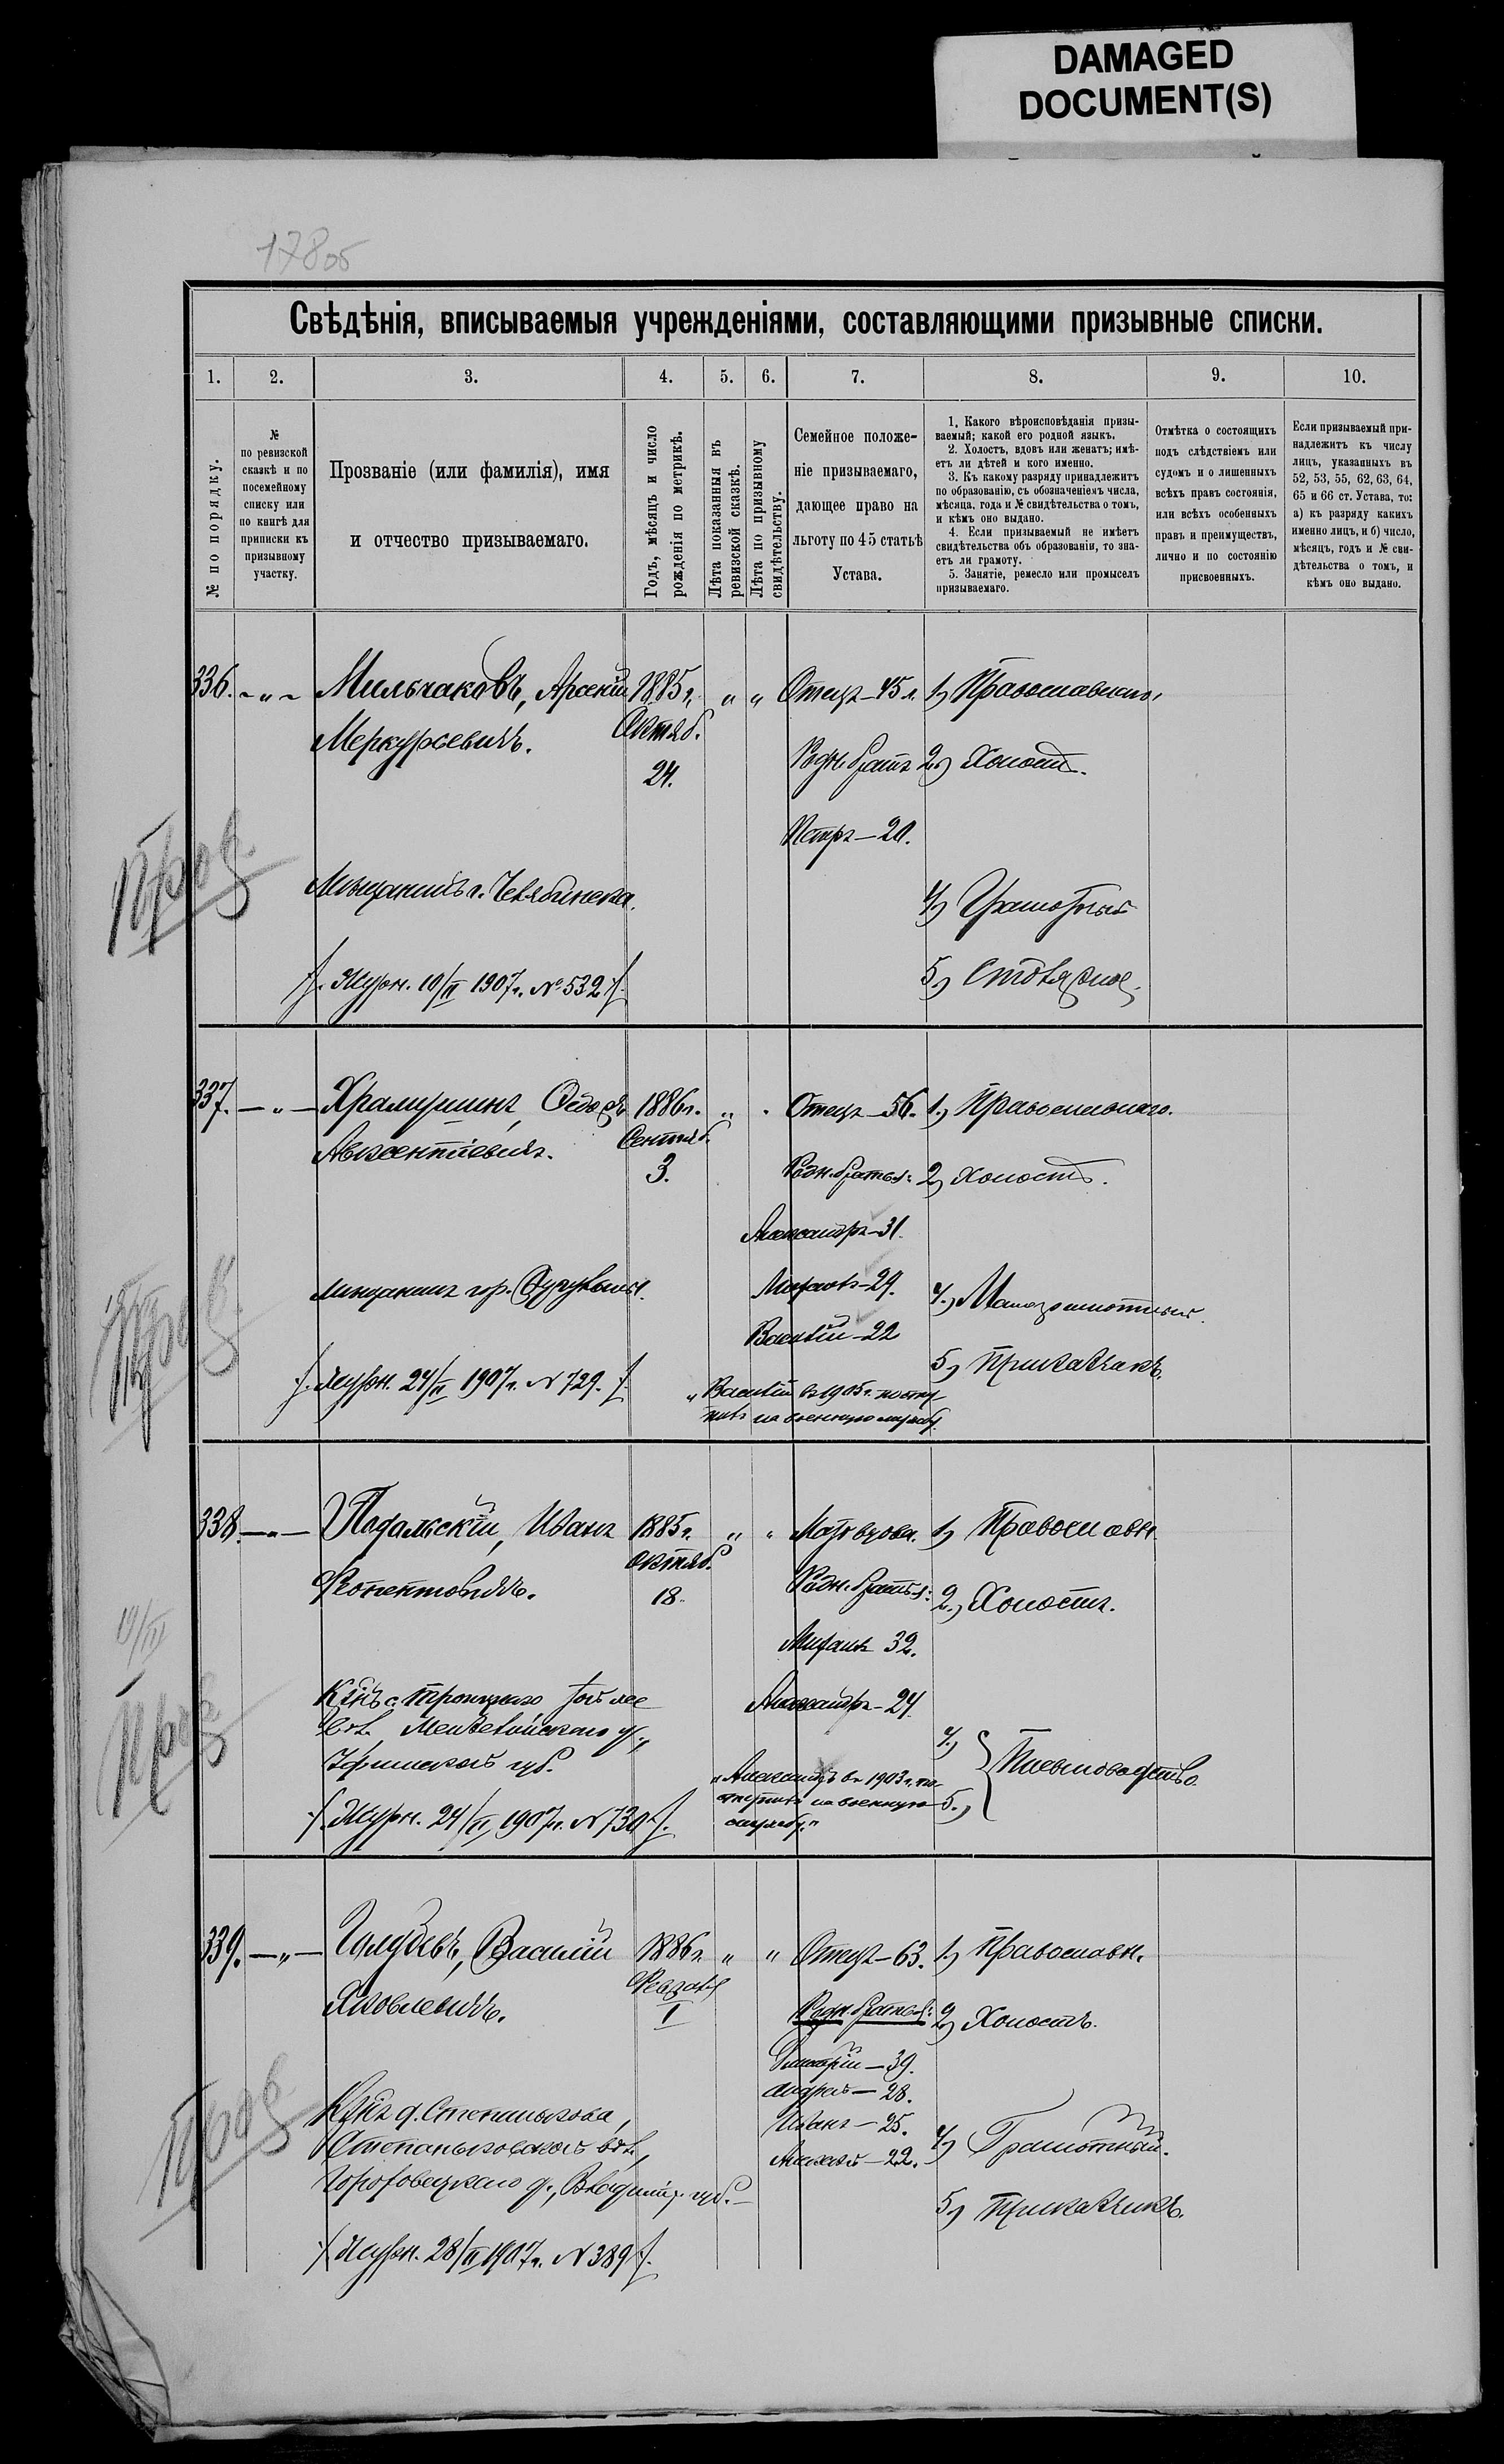 DAMAGED
DOCUMENT(S)
178об
Свѣдѣнія, вписываемыя учрежденіями, составляющими призывные списки.
1. 2. 3. 4. 5. 6. 7. 8. 9. 10.
№ по порядку.
№
по ревизской
сказкѣ и по
посемейному
списку или
по книгѣ для
приписки къ
призывному
участку.
Прозваніе (или фамилія), имя
и отчество призываемаго.
Годъ, мѣсяцъ и число
рожденія по метрикѣ.
Лѣта показанныя въ
ревизской сказкѣ.
Лѣта по призывному
свидѣтельству.
Семейное положе-
ніе призываемаго,
дающее право на
льготу по 45 статьѣ
Устава.
1. Какого вѣроисповѣданія призы-
ваемый; какой его родной языкъ.
2. Холостъ, вдовъ или женатъ; имѣ-
етъ ли дѣтей и кого именно.
3. Къ какому разряду принадлежитъ
по образованію, съ обозначеніемъ числа,
мѣсяца, года и № свидѣтельства о томъ,
и кѣмъ оно выдано.
4. Если призываемый не имѣетъ
свидѣтельства объ образованіи, то зна-
етъ ли грамоту.
5. Занятіе, ремесло или промыселъ
призываемаго.
Отмѣтка о состоящихъ
подъ слѣдствіемъ или
судомъ и о лишенныхъ
всѣхъ правъ состоянія,
или всѣхъ особенныхъ
правъ и преимуществъ,
лично и по состоянію
присвоенныхъ.
Если призываемый при-
надлежитъ къ числу
лицъ, указанныхъ въ
52, 53, 55, 62, 63, 64,
65 и 66 ст. Устава, то:
а) къ разряду какихъ
именно лицъ, и б) число,
мѣсяцъ, годъ и № сви-
дѣтельства о томъ, и
кѣмъ оно выдано.
336. - „ - Мильчаковъ, Арсеній 1885 г. „ „ Отецъ - 45 л. 1) Православнаго,
Меркурьевичъ. Октяб.
24. Родн. братъ 2) Холостъ.
Петръ - 20.
Мѣщанинъ г. Челябинска.
4) Грамотный
Журн. 10/II 1907 г. № 532
5) Столярное.
337. — „ — Храмушинъ, Ѳедоръ 1886 г. „ „ Отецъ - 56. 1.) Православнаго.
Авксентіевичъ. Сентяб.
3. Родн. братья: 2) холостъ.
Александръ - 31.
Мѣщанинъ гор. Михаилъ - 29. 4.) Малограмотный.
Василій - 22
5) Приказчикъ.
Журн. 24/II 1907 г. N 729.
„Василій въ 1905 г. посту-
пилъ на военную службу.
338. — „ — Подальскій, Иванъ 1885 г. „ „ Мать вдова. 1) Православн.
октяб.
18. Родн. братья: 2.) Холостъ.
Михаилъ 32.
Кр-нъ с. Троицкаго
Александръ - 24.
вол. Мензелинскаго у.,
Уфимской губ.
„Александръ въ 1903 г. по-
ступилъ на военную
службу."
4.)
5.) Письмоводство.
Журн. 24/II 1907 г. N 730
339. — „ — Голубевъ, Василій 1886 г. „ „ Отецъ - 63. 1) Православн.
Яковлевичъ. Феврал.
1 Родн. братья: 2) Холостъ.
Дмитрій - 39.
Андрей - 28.
Кр-нъ д. Степанькова,
Иванъ - 25.
Степаньковской вол.,
Алексѣй - 22. 4) Грамотный.
Гороховецкаго у., Владимір. губ. -
5) Приказчикъ.
Журн. 28/II 1907 г. N 389